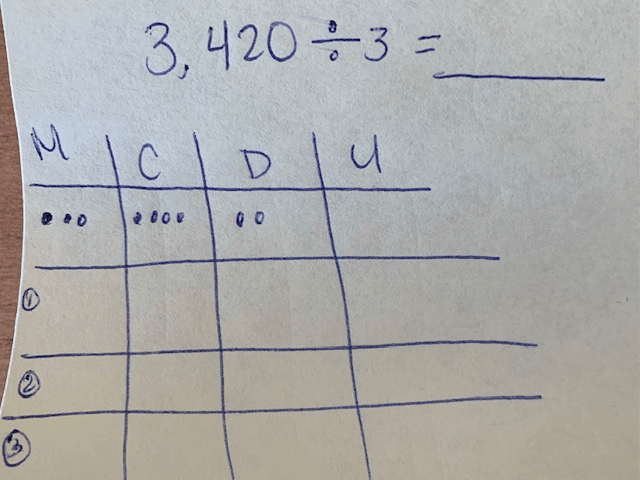 3,420 ÷ 3 = ______
M C D U
①
②
③